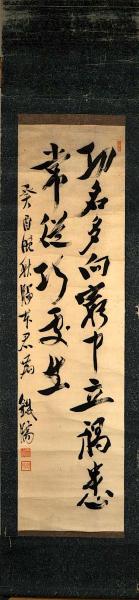 功名多向窮中立禍患
常從巧處生
癸酉晩秋